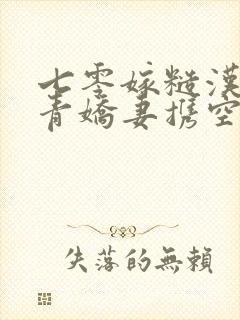 七零嫁糙漢
青嬌妻携空
失落的無賴